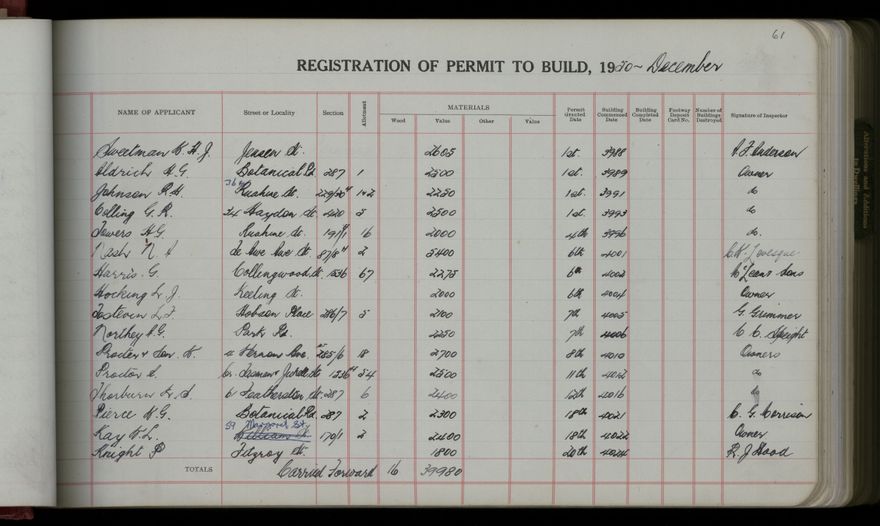 61
REGISTRATION OF PERMIT TO BUILD, 1950 - December
NAME OF APPLICANT Street or Locality Section Allotment MATERIALS Permit Granted Date Building Commenced Date Building Completed Date Footway Deposit Card No. Number of Buildings Destroyed Signature of Inspector
Wood Value Other Value
Sweetman W. H. J. Jensen St. 2605 1st. 3988
Aldrich H. G. Botanical Rd. 287 1 2500 1st. 3989 Owner
Johnson R. H. Ruahine St. 2250 1st. 3991 do
Colling G. R. 34 Haydon St. 220 3 2500 1st. 3993 do
Towers H. G. Ruahine St. 191/1 16 2000 4th 3996 do.
Nash N. 87/8 2 3400 6th 4001
Harris. G. Collingwood St. 1536 67 2275 6th 4002 McLean & Sons
Hocking L. J. Keeling St. 2000 6th 4004 Owner
Hobson Place 286/7 5 2100 7th 4005 G. Grimmer
Northey Park Rd. 2250 7th 4006 Speight
Procter & Son W. Vernon Ave. 285/6 18 2700 8th 4010 Owners
Proctor C. 1536 54 2500 11th 4012 do
Thorburn 6 Featherston St. 287 6 2400 12th 4016 do
Pierce H. G. Botanical Rd. 287 2 2300 18th 4021 C. G. Corrison
59 Margaret St.
Kay W. L. William St. 170/1 2 2400 18th 4022 Owner
Knight P Fitzroy St. 1800 20th 4024 R. J Hood
TOTALS Carried Forward 16 39980
Alterations and Additions to Dwellings